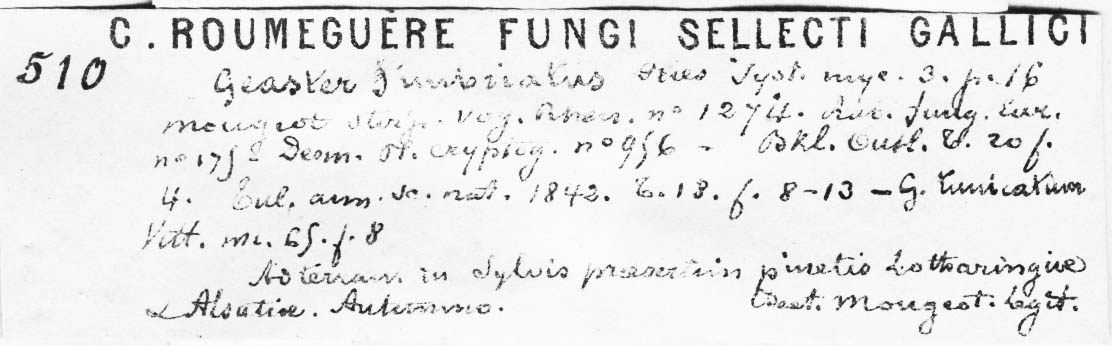 C. ROUMEGUÈRE FUNGI SELLECTI GALLICI
510
Geaster Fimbriatus Fries Syst. myc. 3. p. 16
Mougeot Stirp. Vog. Rhen. nº 1274. Rab. fung. eur.
nº 175 Desm. Pl. cryptog. nº 956 - Bkl. Outl. t. 20 f.
4. Tul. ann. sc. nat. 1842. t. 18. f. 8-13 - G. tunicatum
Vitt. m. 65. f. 8
Ad terram in Sylvis præsertim pinetis Lotharingiæ
& Alsatiæ. Autumno. Doct. Mougeot. Legit.